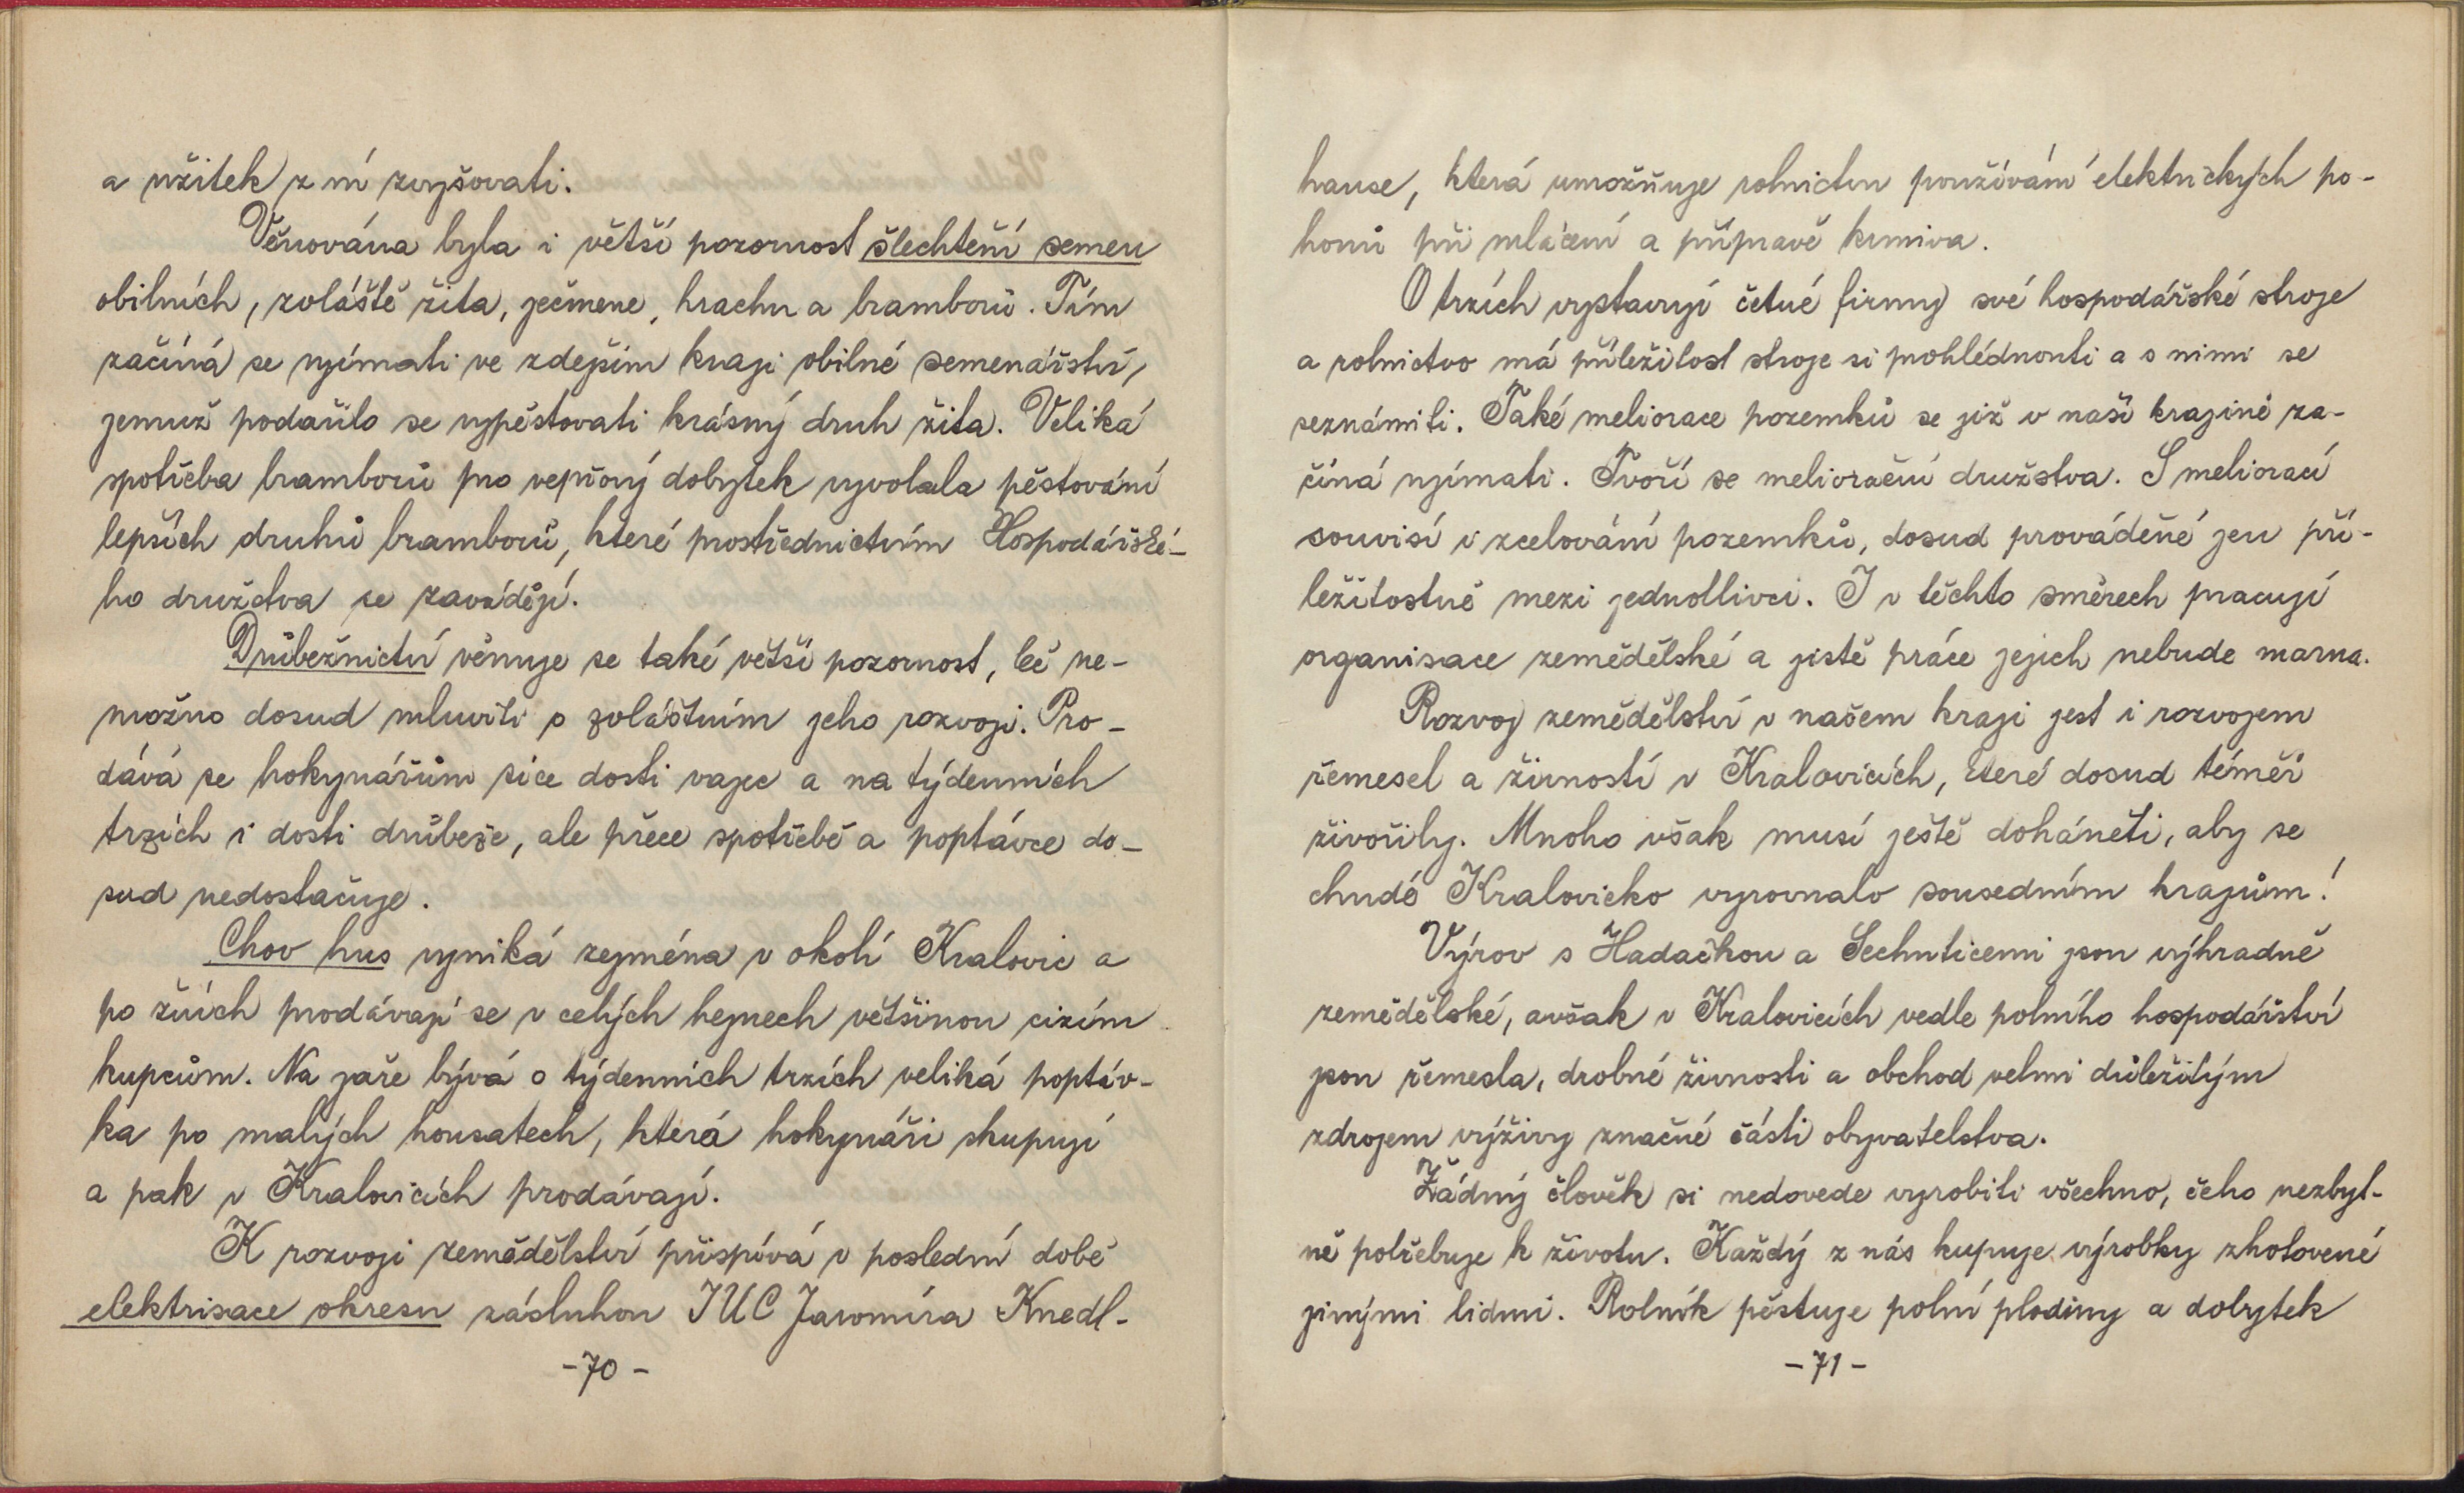 a užitek z ní zvyšovati.
Věnována byla i větší pozornost šlechtění semen
obilních, zvláště žita, ječmene, hrachu a bramborů. Tím
začíná se ujímati ve zdejším kraji obilné semenářství,
jemuž podařilo se vypěstovati krásný druh žita. Veliká
spotřeba bramborů pro vepřový dobytek vyvolala pěstování
lepších druhů bramborů, které prostřednictvím Hospodářské-
ho družstva se zavádějí.
Drůbežnictví věnuje se také větší pozornost, leč ne-
možno dosud mluviti o zvláštním jeho rozvoji. Pro-
dává se hokynářům sice dosti vajec a na týdenních
trzích i dosti drůbeže, ale přece spotřebě a poptávce do-
sud nedostačuje.
Chov hus vyniká zejména v okolí Kralovic a
po žních prodávají se v celých hejnech většinou cizím
kupcům. Na jaře bývá o týdenních trzích veliká poptáv-
ka po malých housatech, která hokynáři skupují
a pak v Kralovicích prodávají.
K rozvoji zemědělství přispívá v poslední době
elektrisace okresu zásluhou JUC Jaromíra Knedl-
-70-
hanse, která umožňuje rolnictvu používání elektrických po-
honů při mlácení a přípravě krmiva.
O trzích vystavují četné firmy své hospodářské stroje
a rolnictvo má příležitost stroje si prohlédnouti a s nimi se
seznámiti. Také meliorace pozemků se již v naší krajině za-
číná ujímati. Tvoří se meliorační družstva. S meliorací
souvisí i zcelování pozemků, dosud prováděné jen pří-
ležitostně mezi jednotlivci. I v těchto směrech pracují
organisace zemědělské a jistě práce jejich nebude marna.
Rozvoj zemědělství v našem kraji jest i rozvojem
řemesel a živností v Kralovicích, které dosud téměř
živořily. Mnoho však musí ještě doháněti, aby se
chudé Kralovicko vyrovnalo sousedním krajům!
Výrov s Hadačkou a Sechuticemi jsou výhradně
zemědělské, avšak v Kralovicích vedle polního hospodářství
jsou řemesla, drobné živnosti a obchod velmi důležitým
zdrojem výživy značné části obyvatelstva.
Žádný člověk si nedovede vyrobiti všechno, čeho nezbyt-
ně potřebuje k životu. Každý z nás kupuje výrobky zhotovené
jinými lidmi. Rolník pěstuje polní plodiny a dobytek
-71-